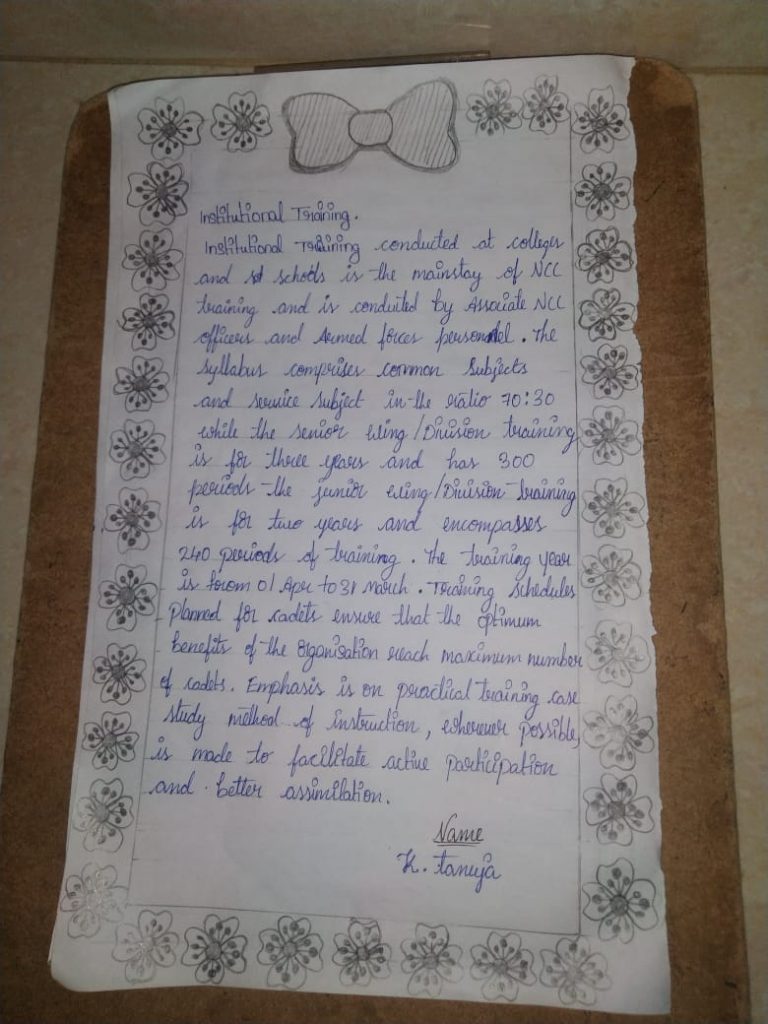 Institutional Training.
Institutional Training conducted at colleges
and schools is the mainstay of NCC
training and is conduited by Associate NCC
officers and Armed forces personnel. The
syllabus comprises common Subjects
and service subject in the ratio 70:30
while the senior wing/Division training
is for three years and has 300
periods the junior wing/Division training
is for two years and encompasses
240 periods of training. The training year
is from 01 Apr to 31 March. Training schedules
planned for cadets ensure that the optimum
benefits of the organisation reach maximum number
of cadets. Emphasis is on practical training case
study method of instruction, wherever possible,
is made to facilitate active participation
and better assimilation.
Name
K. Tanuja